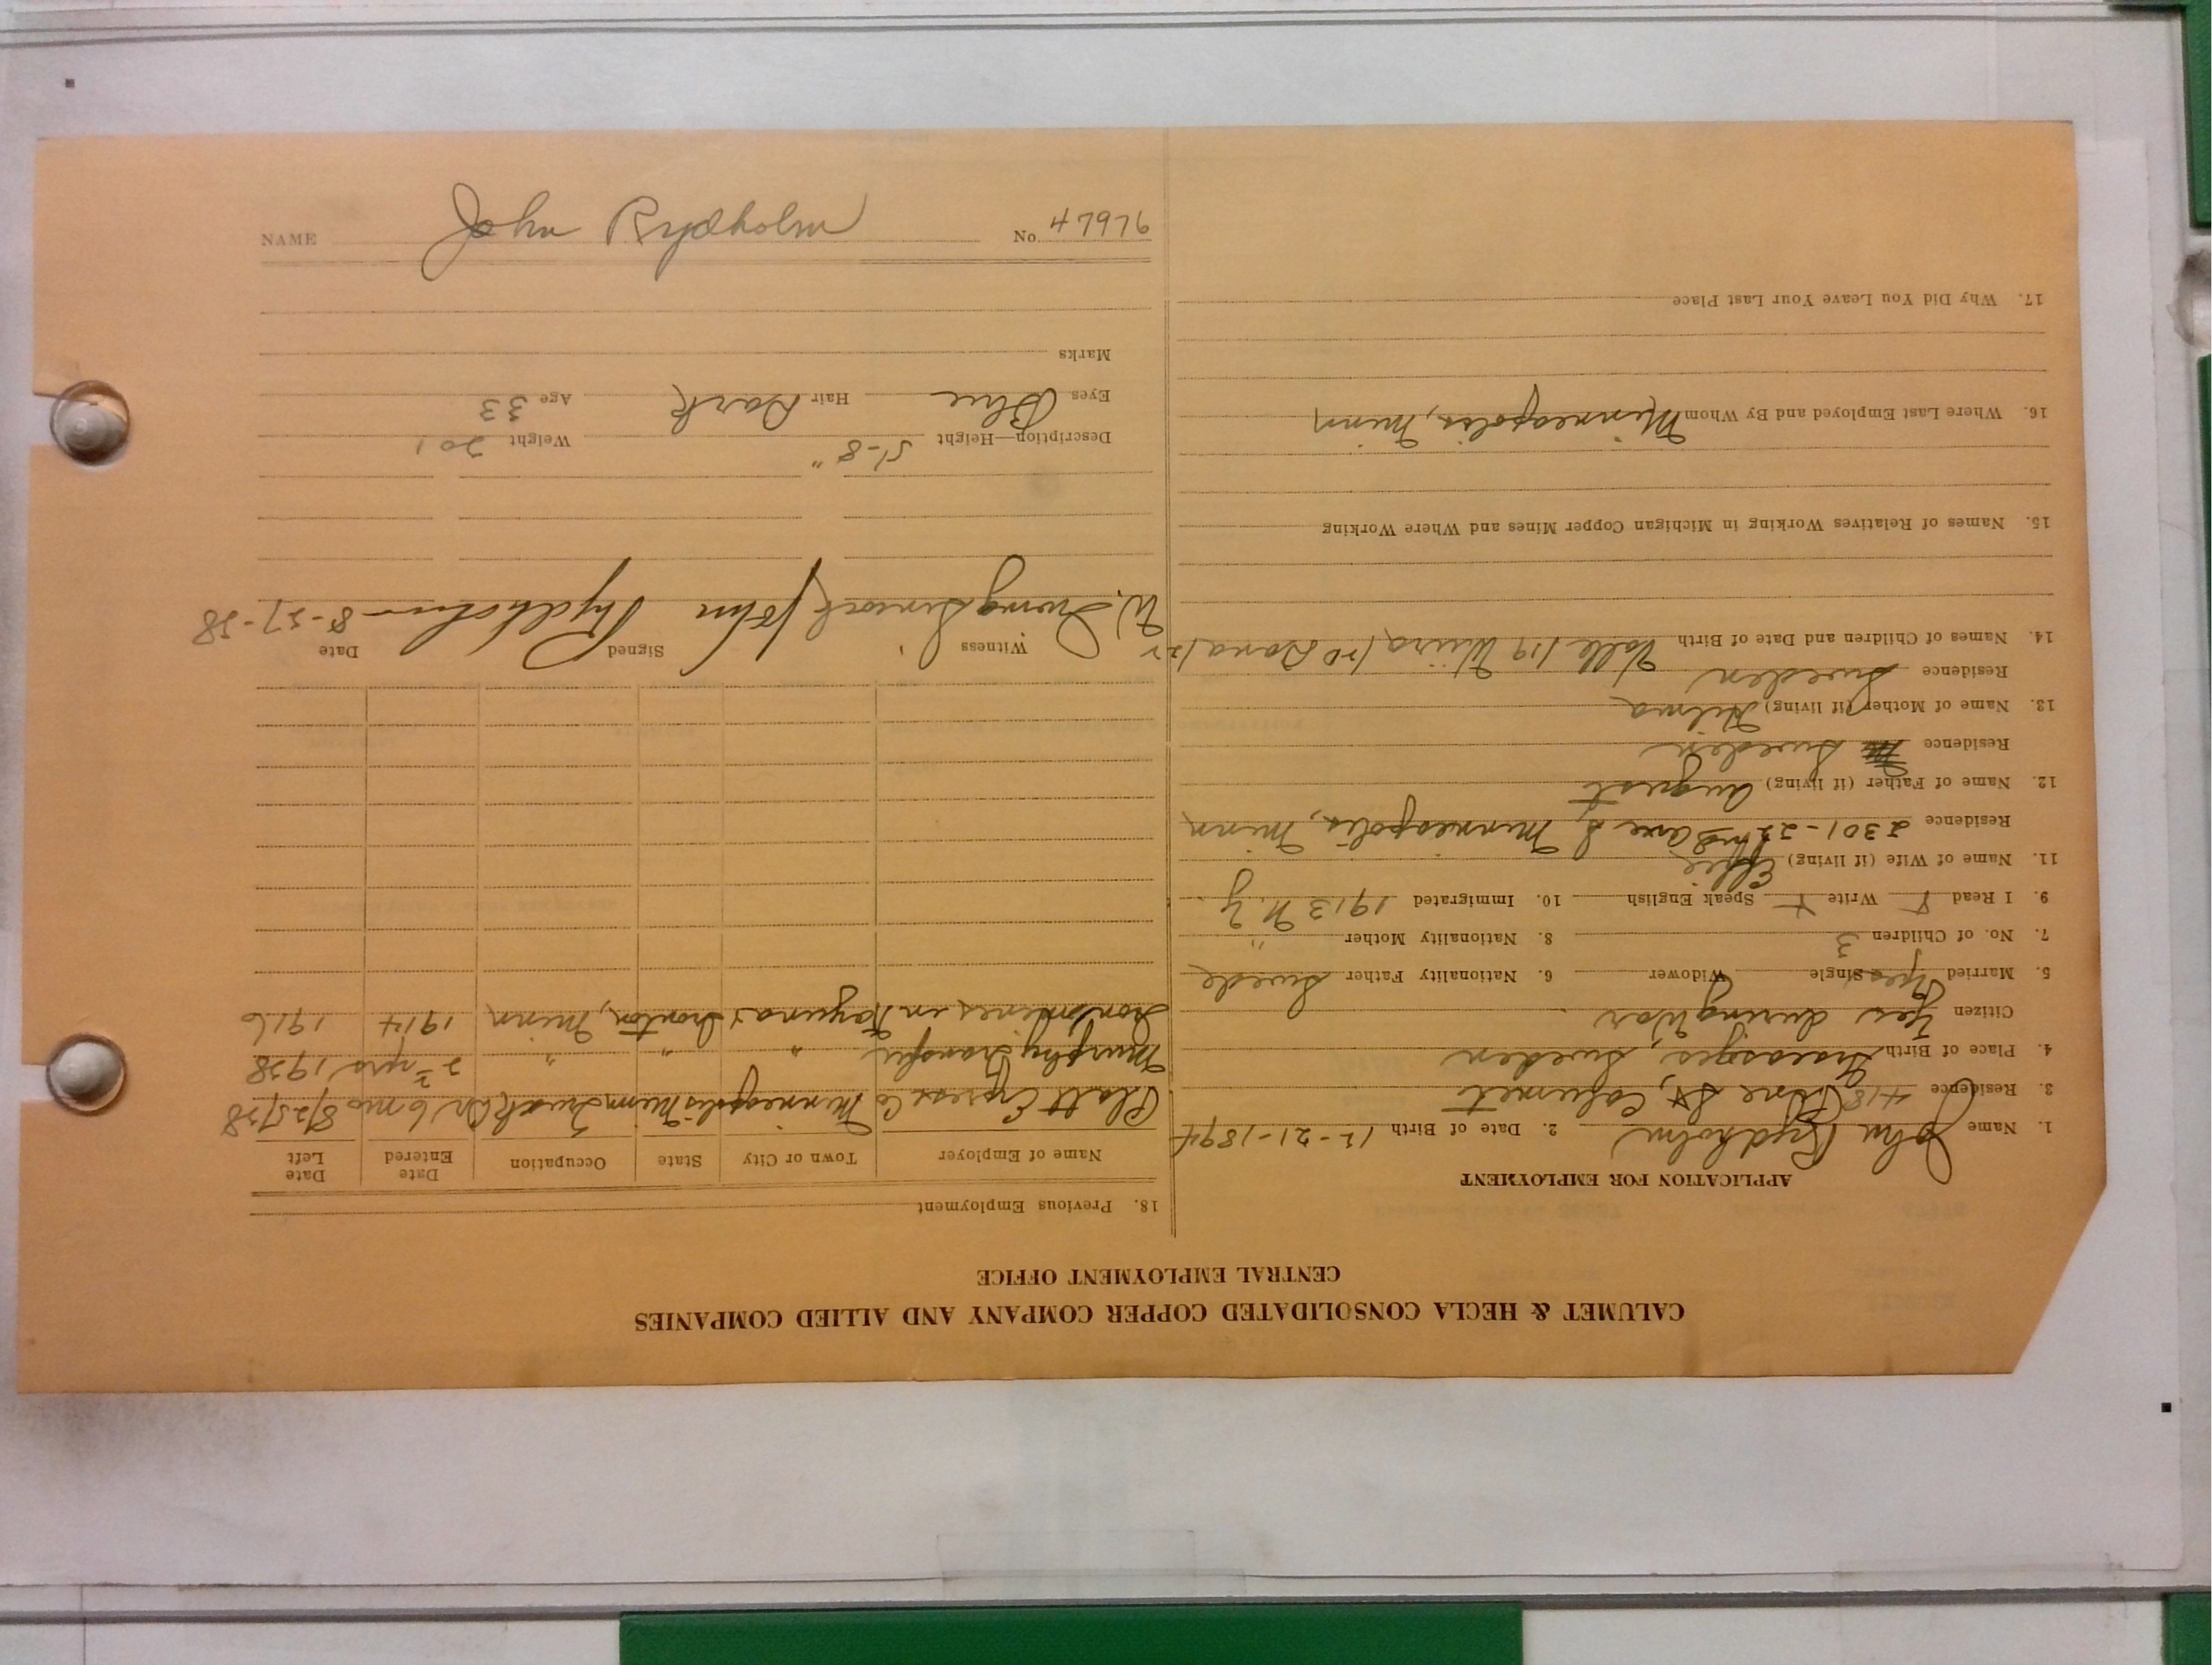 CALUMET & HECLA CONSOLIDATED COPPER COMPANY AND ALLIED COMPANIES
CENTRAL EMPLOYMENT OFFICE
APPLICATION FOR EMPLOYMENT
1. Name John Rydholm 2. Date of Birth 12-21-1894
3. Residence 418 Pine St, Calumet
4. Place of Birth Sweden
Citizen Yes during War
5. Married Yes Single Widower 6. Nationality Father Swede
7. No. of Children 3 8. Nationality Mother "
9. I Read Write Speak English 10. Immigrated 1913 N.Y
11. Name of Wife (if living) Effie
Residence 2301-22nd Ave S Minneapolis, Minn
12. Name of Father (if living) August
Residence Sweden
13. Name of Mother (if living) Hilma
Residence Sweden
14. Names of Children and Date of Birth
15. Names of Relatives Working in Michigan Copper Mines and Where Working
16. Where Last Employed and By Whom Minneapolis, Minn
17. Why Did You Leave Your Last Place
18. Previous Employment
Name of Employer Town or City State Occupation Date Entered Date Left
Platt Express Co Minneapolis Minn Truck Dr 6 mo 8/25/28
Murphy Transfer " " " 2 yrs 1928
Iron mines in Ironton, Minn 1914 1916
Witness Signed Date
W. John Rydholm 8-27-28
Description—Height 5'-8" Weight 201
Eyes Blue Hair Dark Age 33
Marks
NAME John Rydholm No.